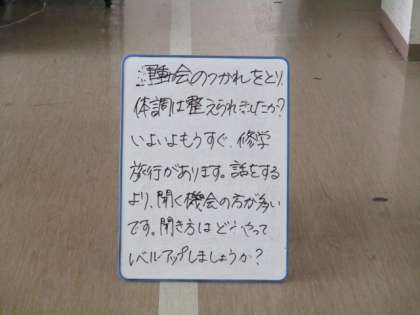 運動会のつかれをとり、
体調は整えられましたか?
いよいよもうすぐ、修学
旅行があります。話をする
より、聞く機会の方が多い
です。聞き方はどうやって
レベルアップしましょうか?